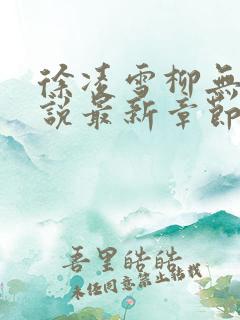 徐凌雪柳無
說最新章節
吾里皓皓
未经同意禁止转载